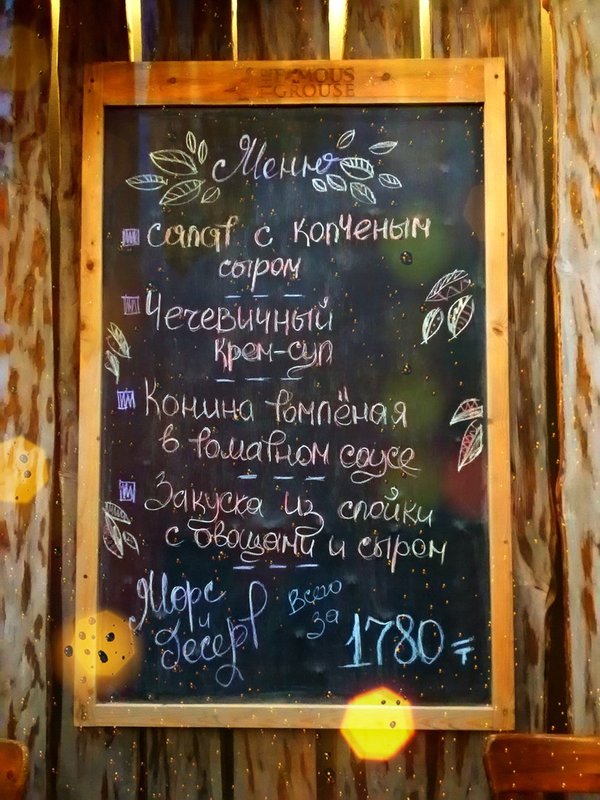 THE FAMOUS
GROUSE
Меню
салат с копченым
сыром
Чечевичный
крем-суп
Конина томлёная
в томатном соусе
Закуска из слойки
с овощами и сыром
Морс
и
Десерт
всего
за
1780 ₸